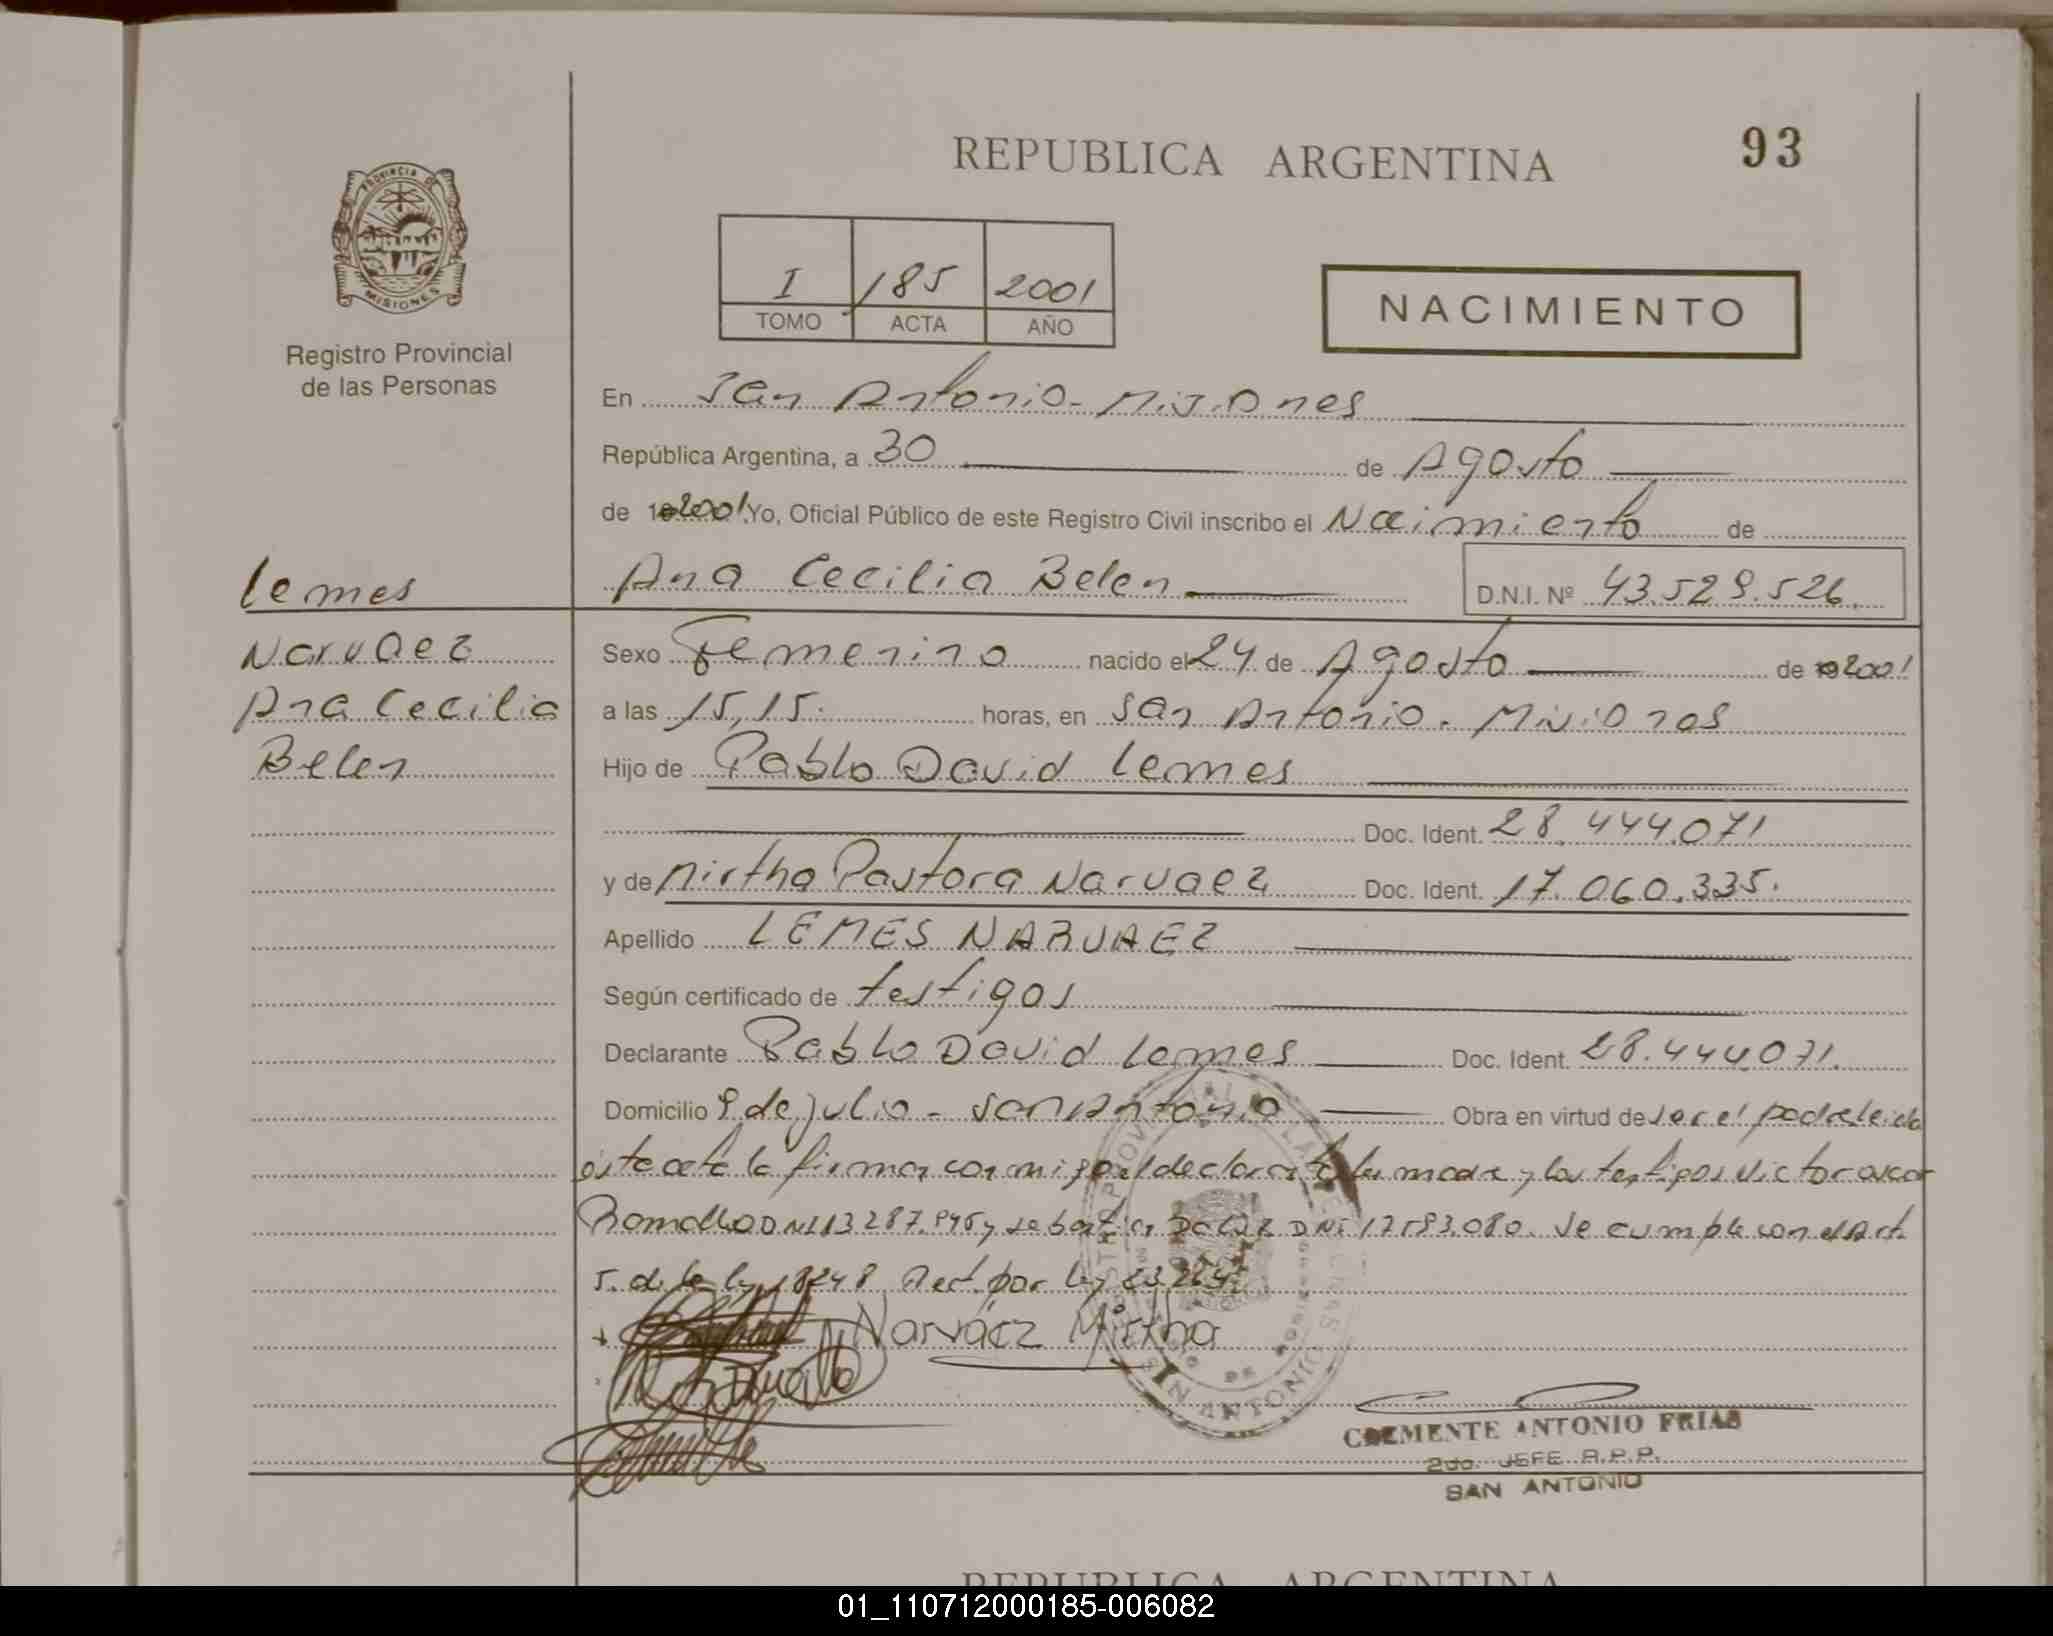 93
REPUBLICA ARGENTINA
PROVINCIA DE
MISIONES
Registro Provincial
de las Personas
I 185 2001
TOMO ACTA AÑO
NACIMIENTO
En San Antonio - Misiones
República Argentina, a 30 de Agosto
de 2001 Yo, Oficial Público de este Registro Civil inscribo el Nacimiento de
Lemes Ana Cecilia Belen D.N.I. Nº 43.529.526.
Narvaez Sexo Femenino nacido el 24 de Agosto de 2001
Ana Cecilia a las 15,15. horas, en San Antonio. Misiones
Belen Hijo de Pablo David Lemes
Doc. Ident. 28.444.071
y de Mirtha Pastora Narvaez Doc. Ident. 17.060.335.
Apellido LEMES NARVAEZ
Según certificado de testigos
Declarante Pablo David Lemes Doc. Ident. 28.444.071.
Domicilio 9 de julio - San Antonio Obra en virtud de ser el padre leida
esta acta la firman conmigo el declarante la madre y los testigos Victor oscar
Ramallo DNI 13 287.945 y Sebastian DNI 17583.080. Se cumple con el Art.
5. de la ley 18248 Rect. por ley
Narváez Mirtha
SAN ANTONIO
CLEMENTE ANTONIO FRIAS
2do. JEFE R.P.P.
SAN ANTONIO
REPUBLICA ARGENTINA
01_110712000185-006082